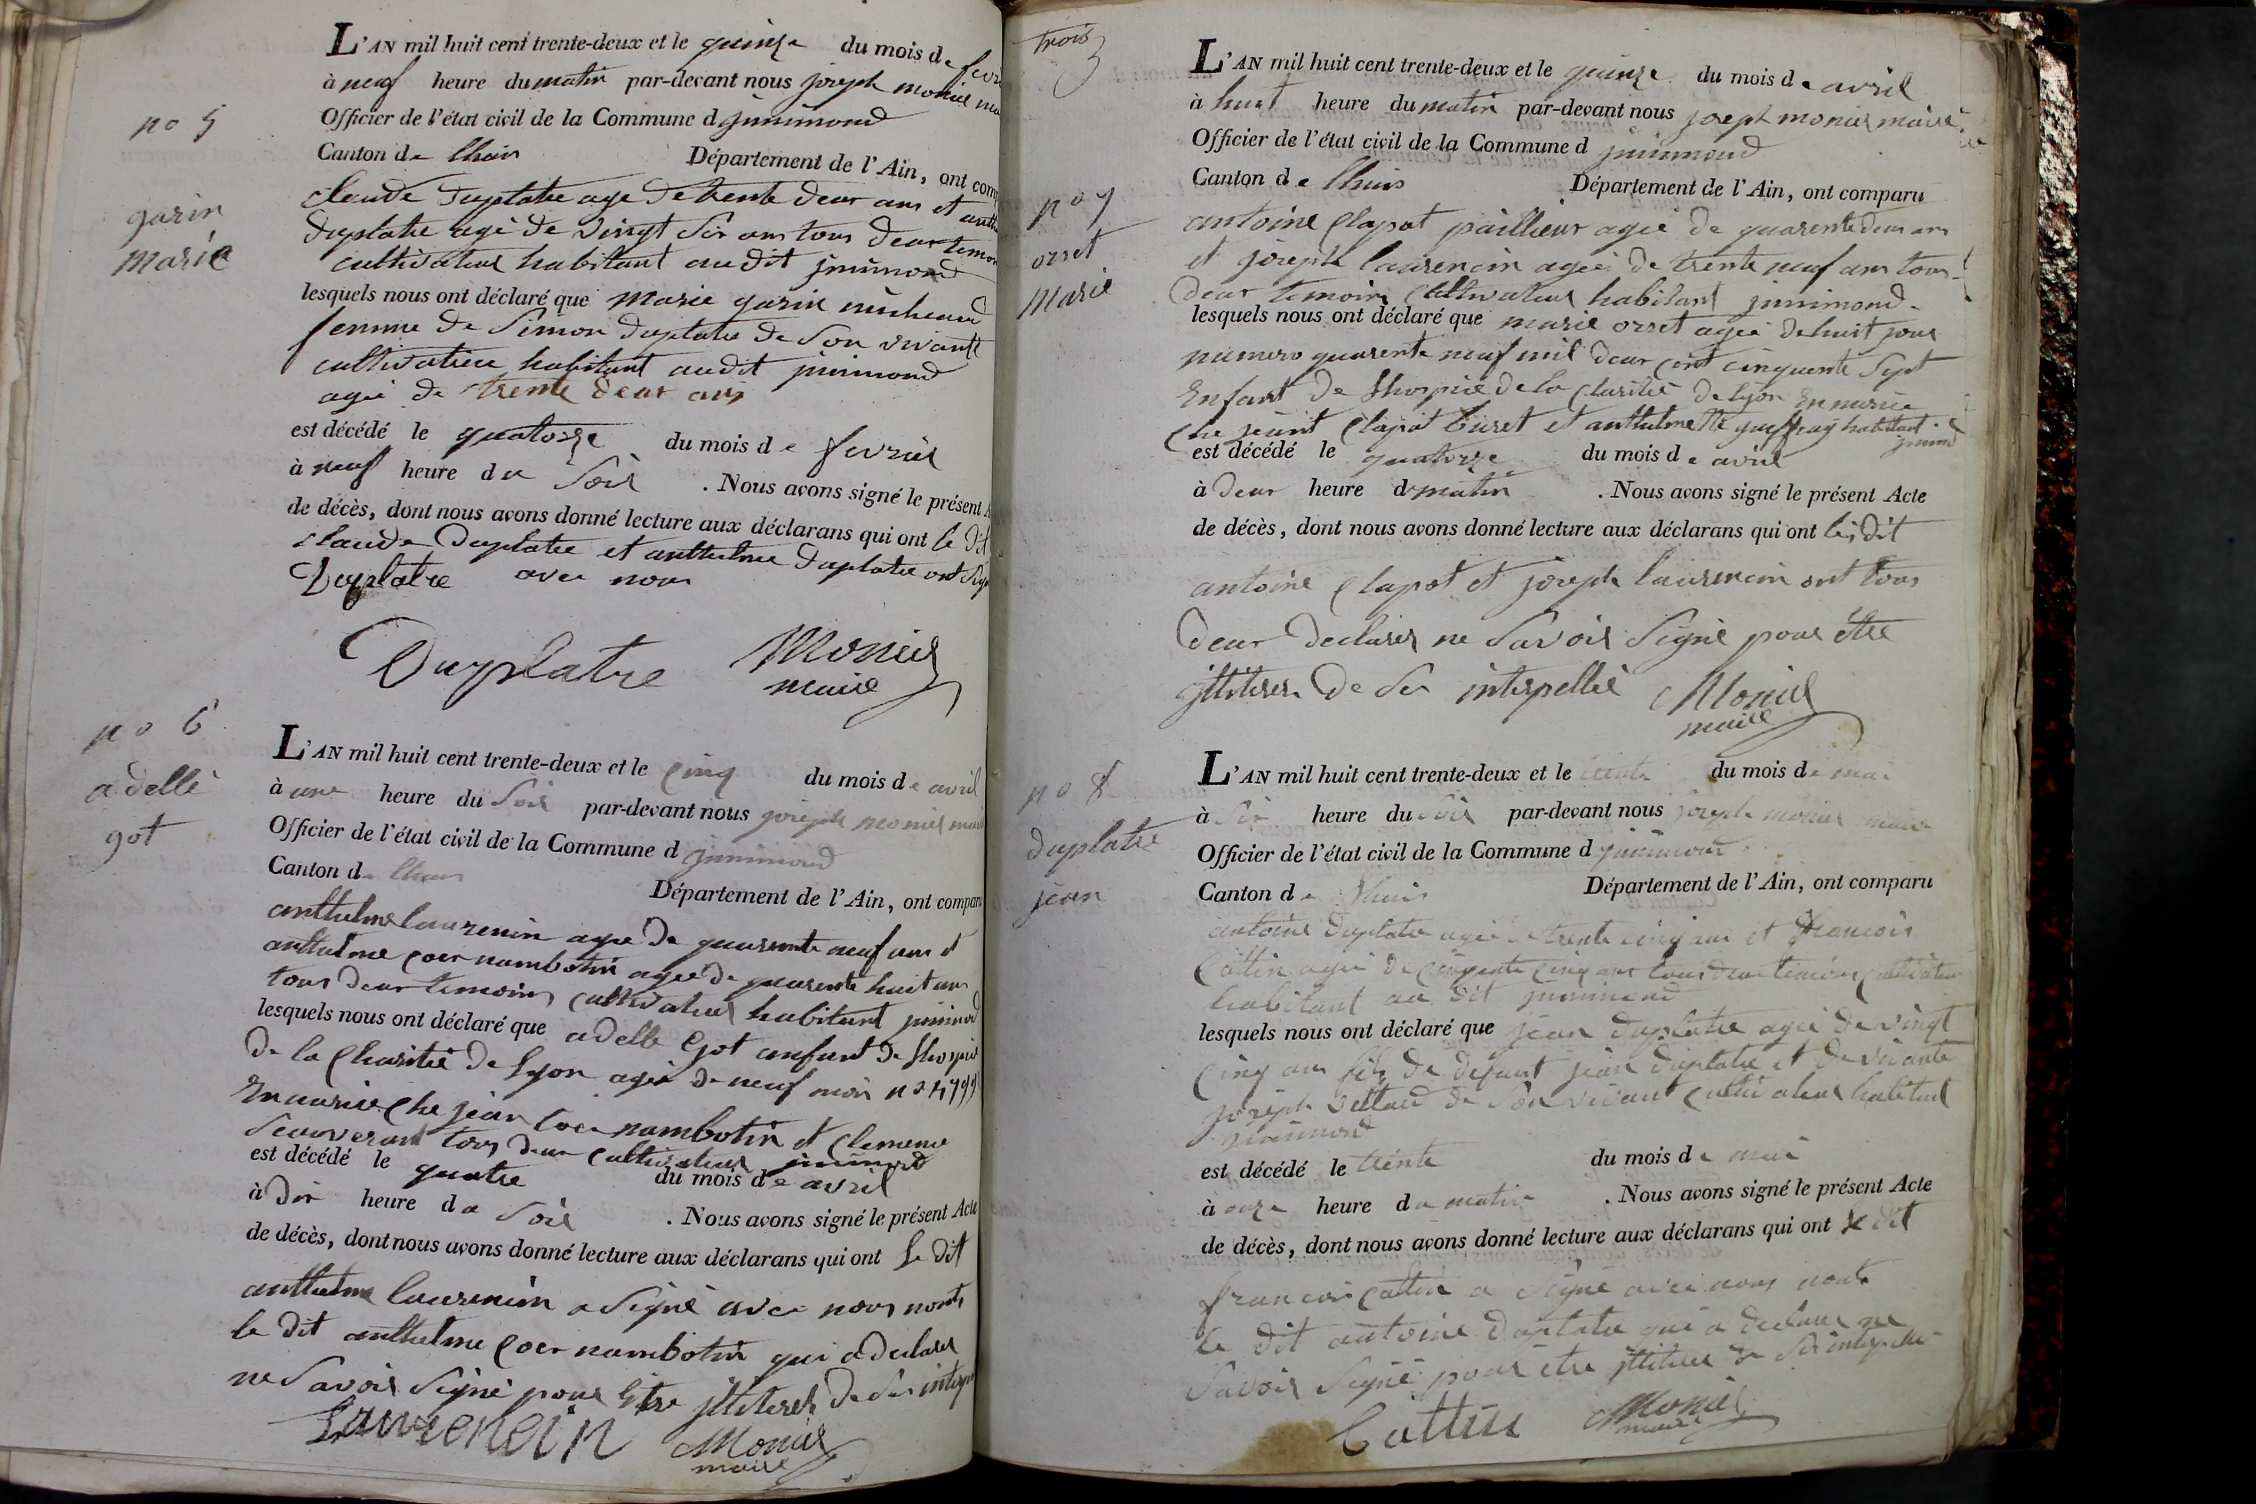 no 5
garin
marie
L'AN mil huit cent trente-deux et le quinze du mois de
à neuf heure du matin par-devant nous joseph monier
Officier de l'état civil de la Commune d jnnimond
Canton de lhuis Département de l'Ain, ont
claude duplatre age de trente deux ans et
duplatre agé de vingt six ans tous deux
cultivateur habitant audit jnnimond
lesquels nous ont déclaré que marie garin micheaud
femme de simon duplatre de son vivant
cultivatrice habitant audit jnnimond
agée de trente deux ans
est décédé le quatorze du mois de fevrier
à neuf heure du soir . Nous avons signé le présent
de décès, dont nous avons donné lecture aux déclarans qui ont le dit
claude duplatre et anthelme duplatre ont
Duplatre avec nous
Duplatre Monier
maire
no 6
adelle
got
L'AN mil huit cent trente-deux et le cinq du mois de avril
à une heure du soir par-devant nous joseph monier
Officier de l'état civil de la Commune d jnnimond
Canton de lhuis Département de l'Ain, ont
anthelme laurencin agee de quarente neuf ans et
anthelme coer nambotin ageé de quarente huit ans
tous deux temoins cultivateur habitant jnnimond
lesquels nous ont déclaré que adelle got enfant de lhospice
de la charitée de lyon agée de neuf mois
En nurice che jean coer nambotin et clemence
tous deux cultivateur jnnimond
est décédé le quatre du mois de avril
à dix heure du soir . Nous avons signé le présent Acte
de décès, dont nous avons donné lecture aux déclarans qui ont le dit
anthelme laurencin a signé avec nous nonts
le dit anthelme coer nambotin qui a declarer
ne savoir signé pour être jlliterer de se
Laurencin Monier
maire
trois
3
no 7
orset
marie
L'AN mil huit cent trente-deux et le quinze du mois de avril
à huit heure du matin par-devant nous joseph monier maire
Officier de l'état civil de la Commune d jnnimond
Canton de lhuis Département de l'Ain, ont comparu
antoine clapot paillieur agée de quarente deux ans
et joseph laurencin ageé de trente neuf ans tous
deux temoins cultivateur habitant jnnimond
lesquels nous ont déclaré que marie orset ageé de huit jour
numero quarente neuf mil deux cent cinquente sept
Enfant de lhospice de la charitée de lyon En nurice
che clapot et anthelmette habitant
jnnimond
est décédé le quatorze du mois de avril
à deux heure du matin . Nous avons signé le présent Acte
de décès, dont nous avons donné lecture aux déclarans qui ont les dit
antoine clapot et joseph laurencin ont tous
deux declarer ne savoir signé pour être
jlliterer de se interpellé Monier
maire
no 8
duplatre
jean
L'AN mil huit cent trente-deux et le trente du mois de mai
à six heure du soir par-devant nous joseph monier maire
Officier de l'état civil de la Commune d jnnimond
Canton de lhuis Département de l'Ain, ont comparu
antoine duplatre ageé de trente cinq ans et francois
cattin ageé de cinquente cinq ans tous deux temoins cultivateur
habitant au dit jnnimond
lesquels nous ont déclaré que jean duplatre ageé de vingt
cinq ans fils de defunt jean duplatre et de vivante
de son vivant cultivateur habitant
jnnimond
est décédé le trente du mois de mai
à onze heure du matin . Nous avons signé le présent Acte
de décès, dont nous avons donné lecture aux déclarans qui ont le dit
francois cattin a signé avec nous nonts
le dit antoine duplatre qui a declarer ne
savoir signé pour être jlliterer de se interpellé
Cattin Monier
maire